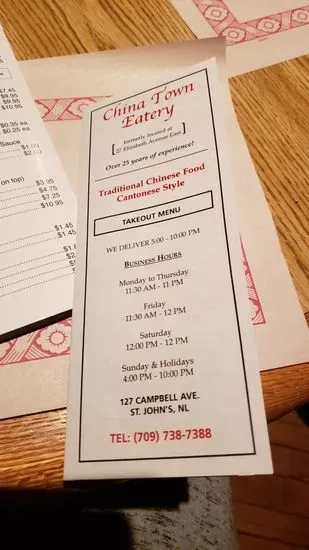 $7.45
$9.95
$9.95
$10.95
$0.35 ea.
$0.25 ea.
Sauce
$1.00
on top)
$3.95
$4.75
$7.25
$10.95
$1.45
$1.45
China Town
Eatery
formerly located at
27 Elizabeth Avenue East
Over 25 years of experience!
Traditional Chinese Food
Cantonese Style
TAKEOUT MENU
WE DELIVER 5:00 - 10:00 PM
BUSINESS HOURS
Monday to Thursday
11:30 AM - 11 PM
Friday
11:30 AM - 12 PM
Saturday
12:00 PM - 12 PM
Sunday & Holidays
4:00 PM - 10:00 PM
127 CAMPBELL AVE.
ST. JOHN'S, NL
TEL: (709) 738-7388